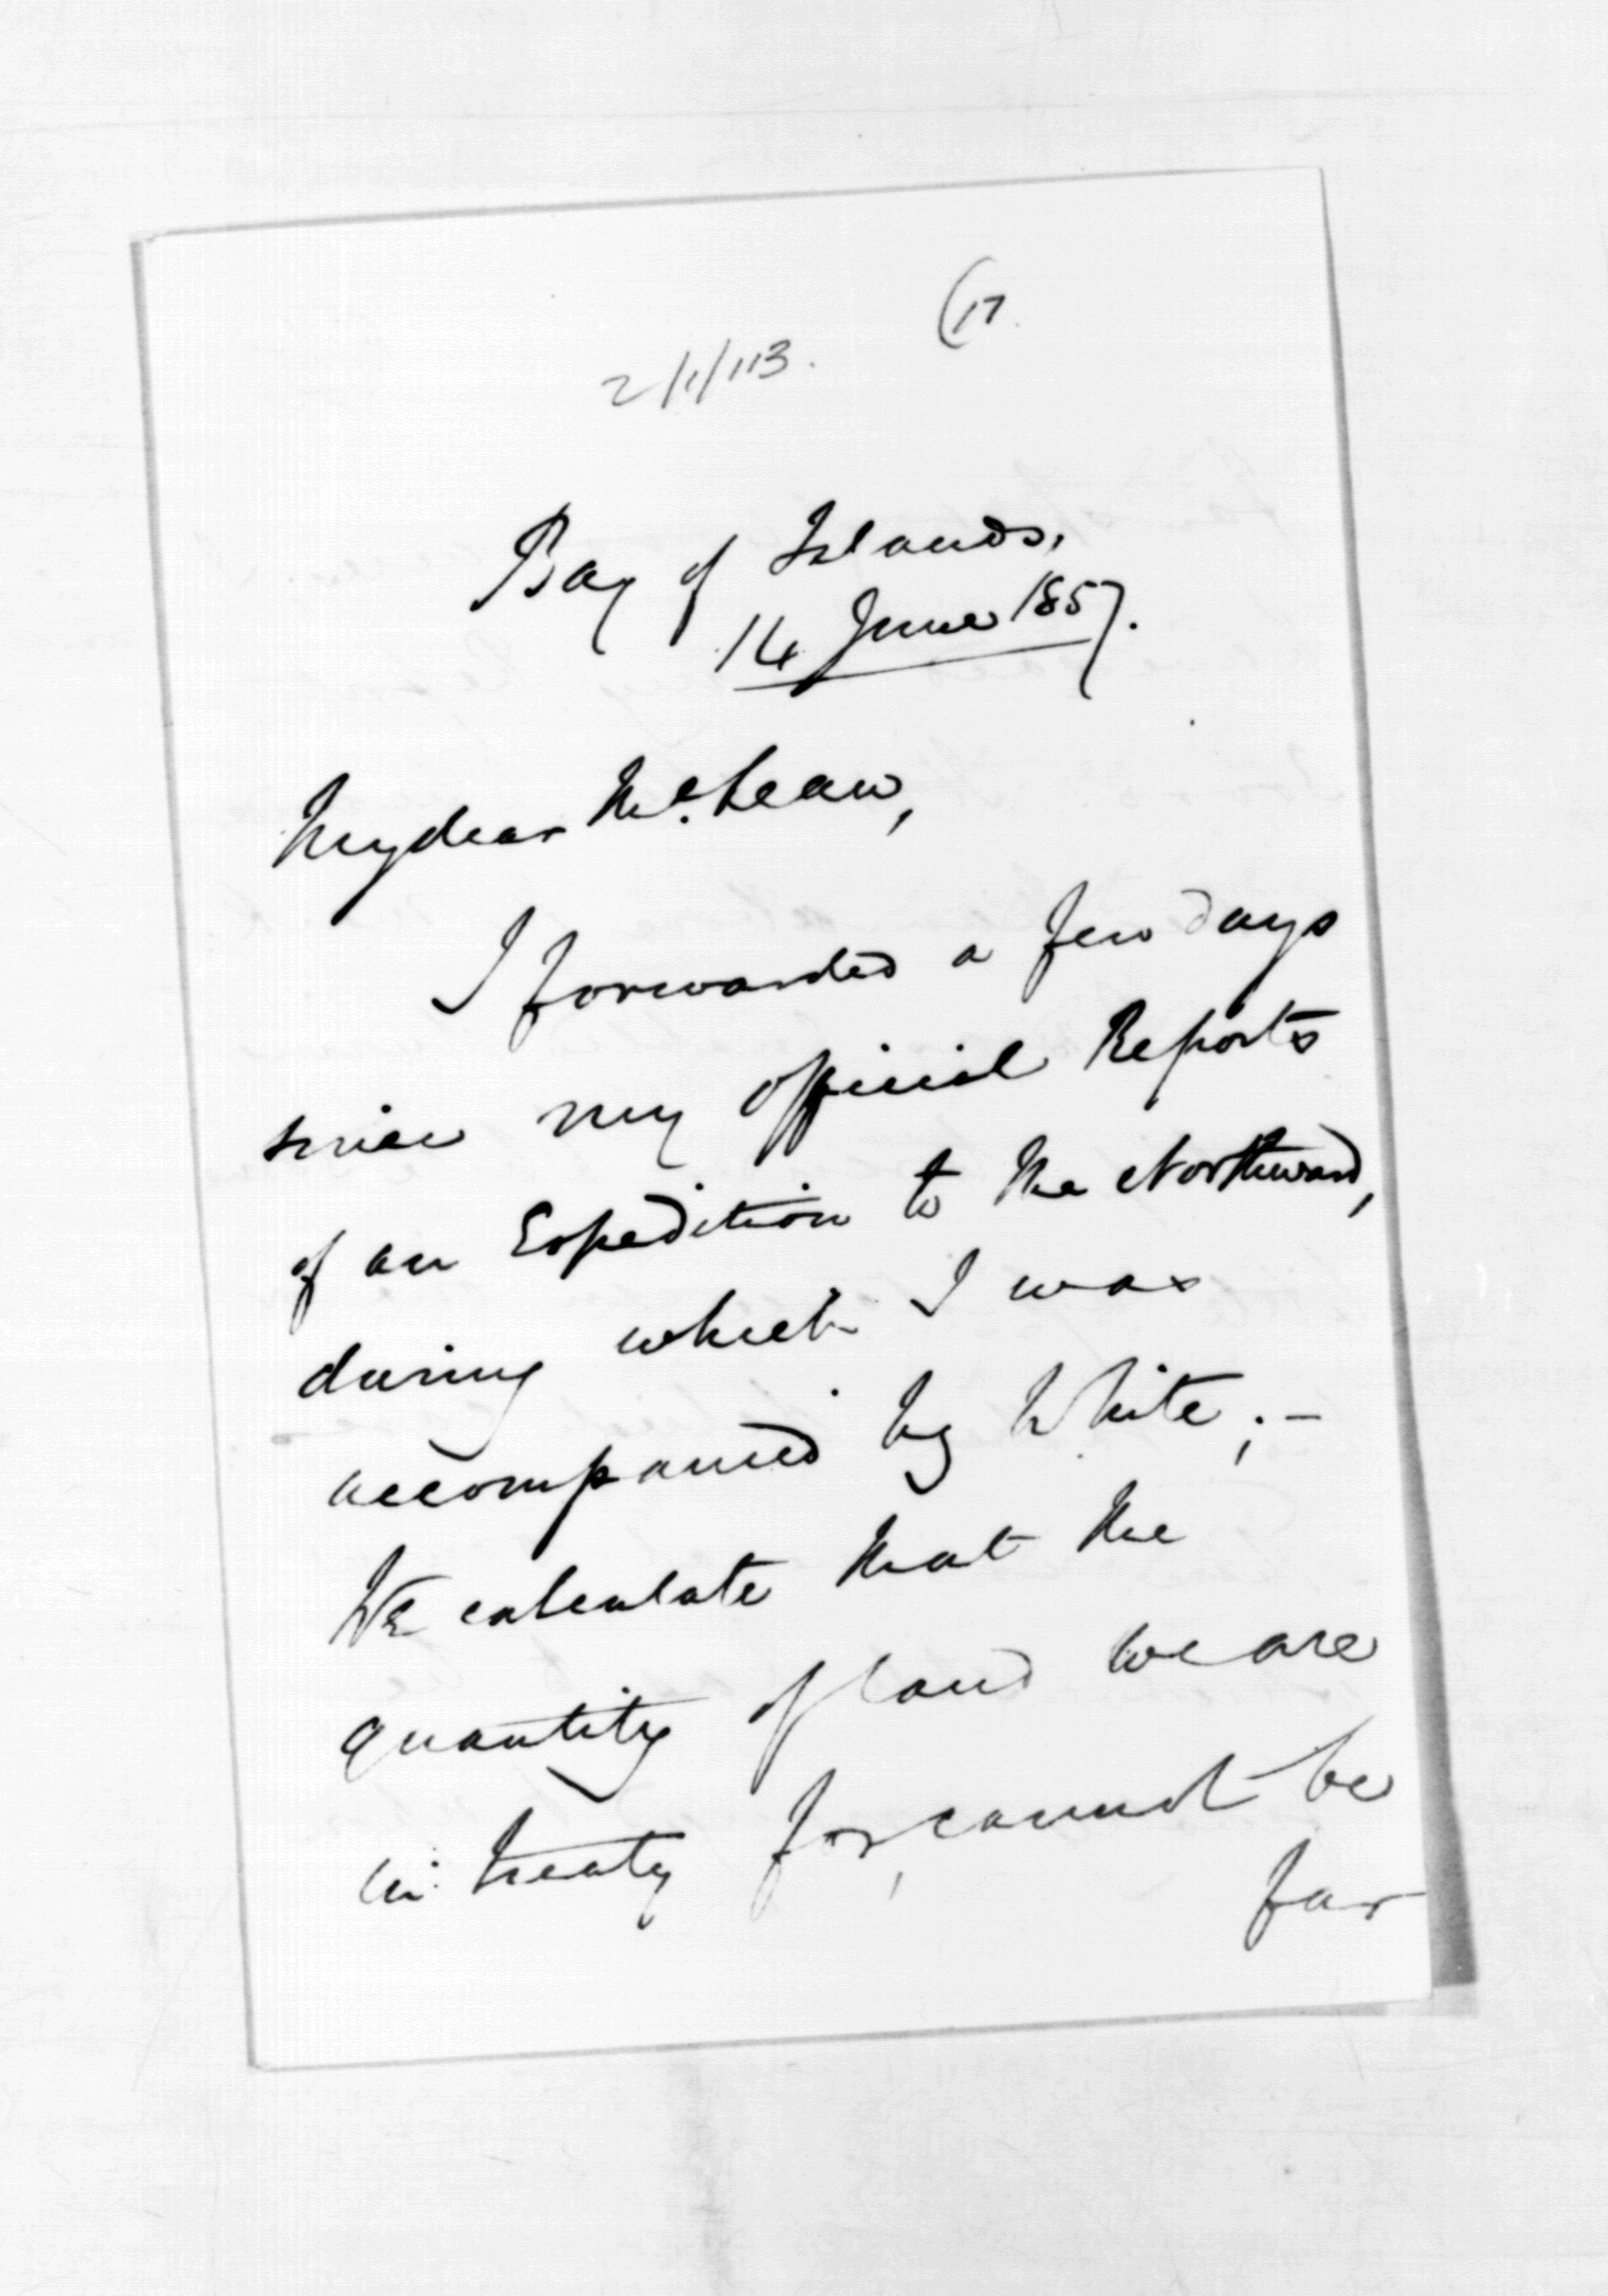 (17.
2/1/113.
Bay of Islands.
14 June 1857.
My dear McLean,
I forwarded a few days
since my official Reports
of an Expedition to the Northward,
during which I was
accompanied by White; -
We calculate that the
quantity of land we are
in treaty for, cannot be
far